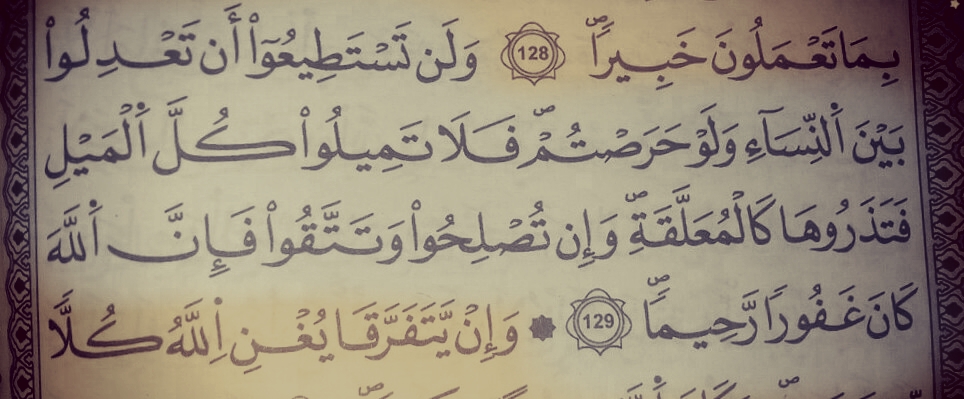 بِمَا تَعْمَلُونَ خَبِيراٗۖ 128 وَلَن تَسْتَطِيعُوٓاْ أَن تَعْدِلُواْ
بَيْنَ اَلنِّسَآءِ وَلَوْ حَرَصْتُمْۖ فَلَا تَمِيلُواْ كُلَّ اَلْمَيْلِ
فَتَذَرُوهَا كَالْمُعَلَّقَةِۖ وَإِن تُصْلِحُواْ وَتَتَّقُواْ فَإِنَّ اَللَّهَ
كَانَ غَفُوراٗ رَّحِيماٗۖ 129 وَإِنْ يَّتَفَرَّقَا يُغْنِ اِللَّهُ كُلّاٗ